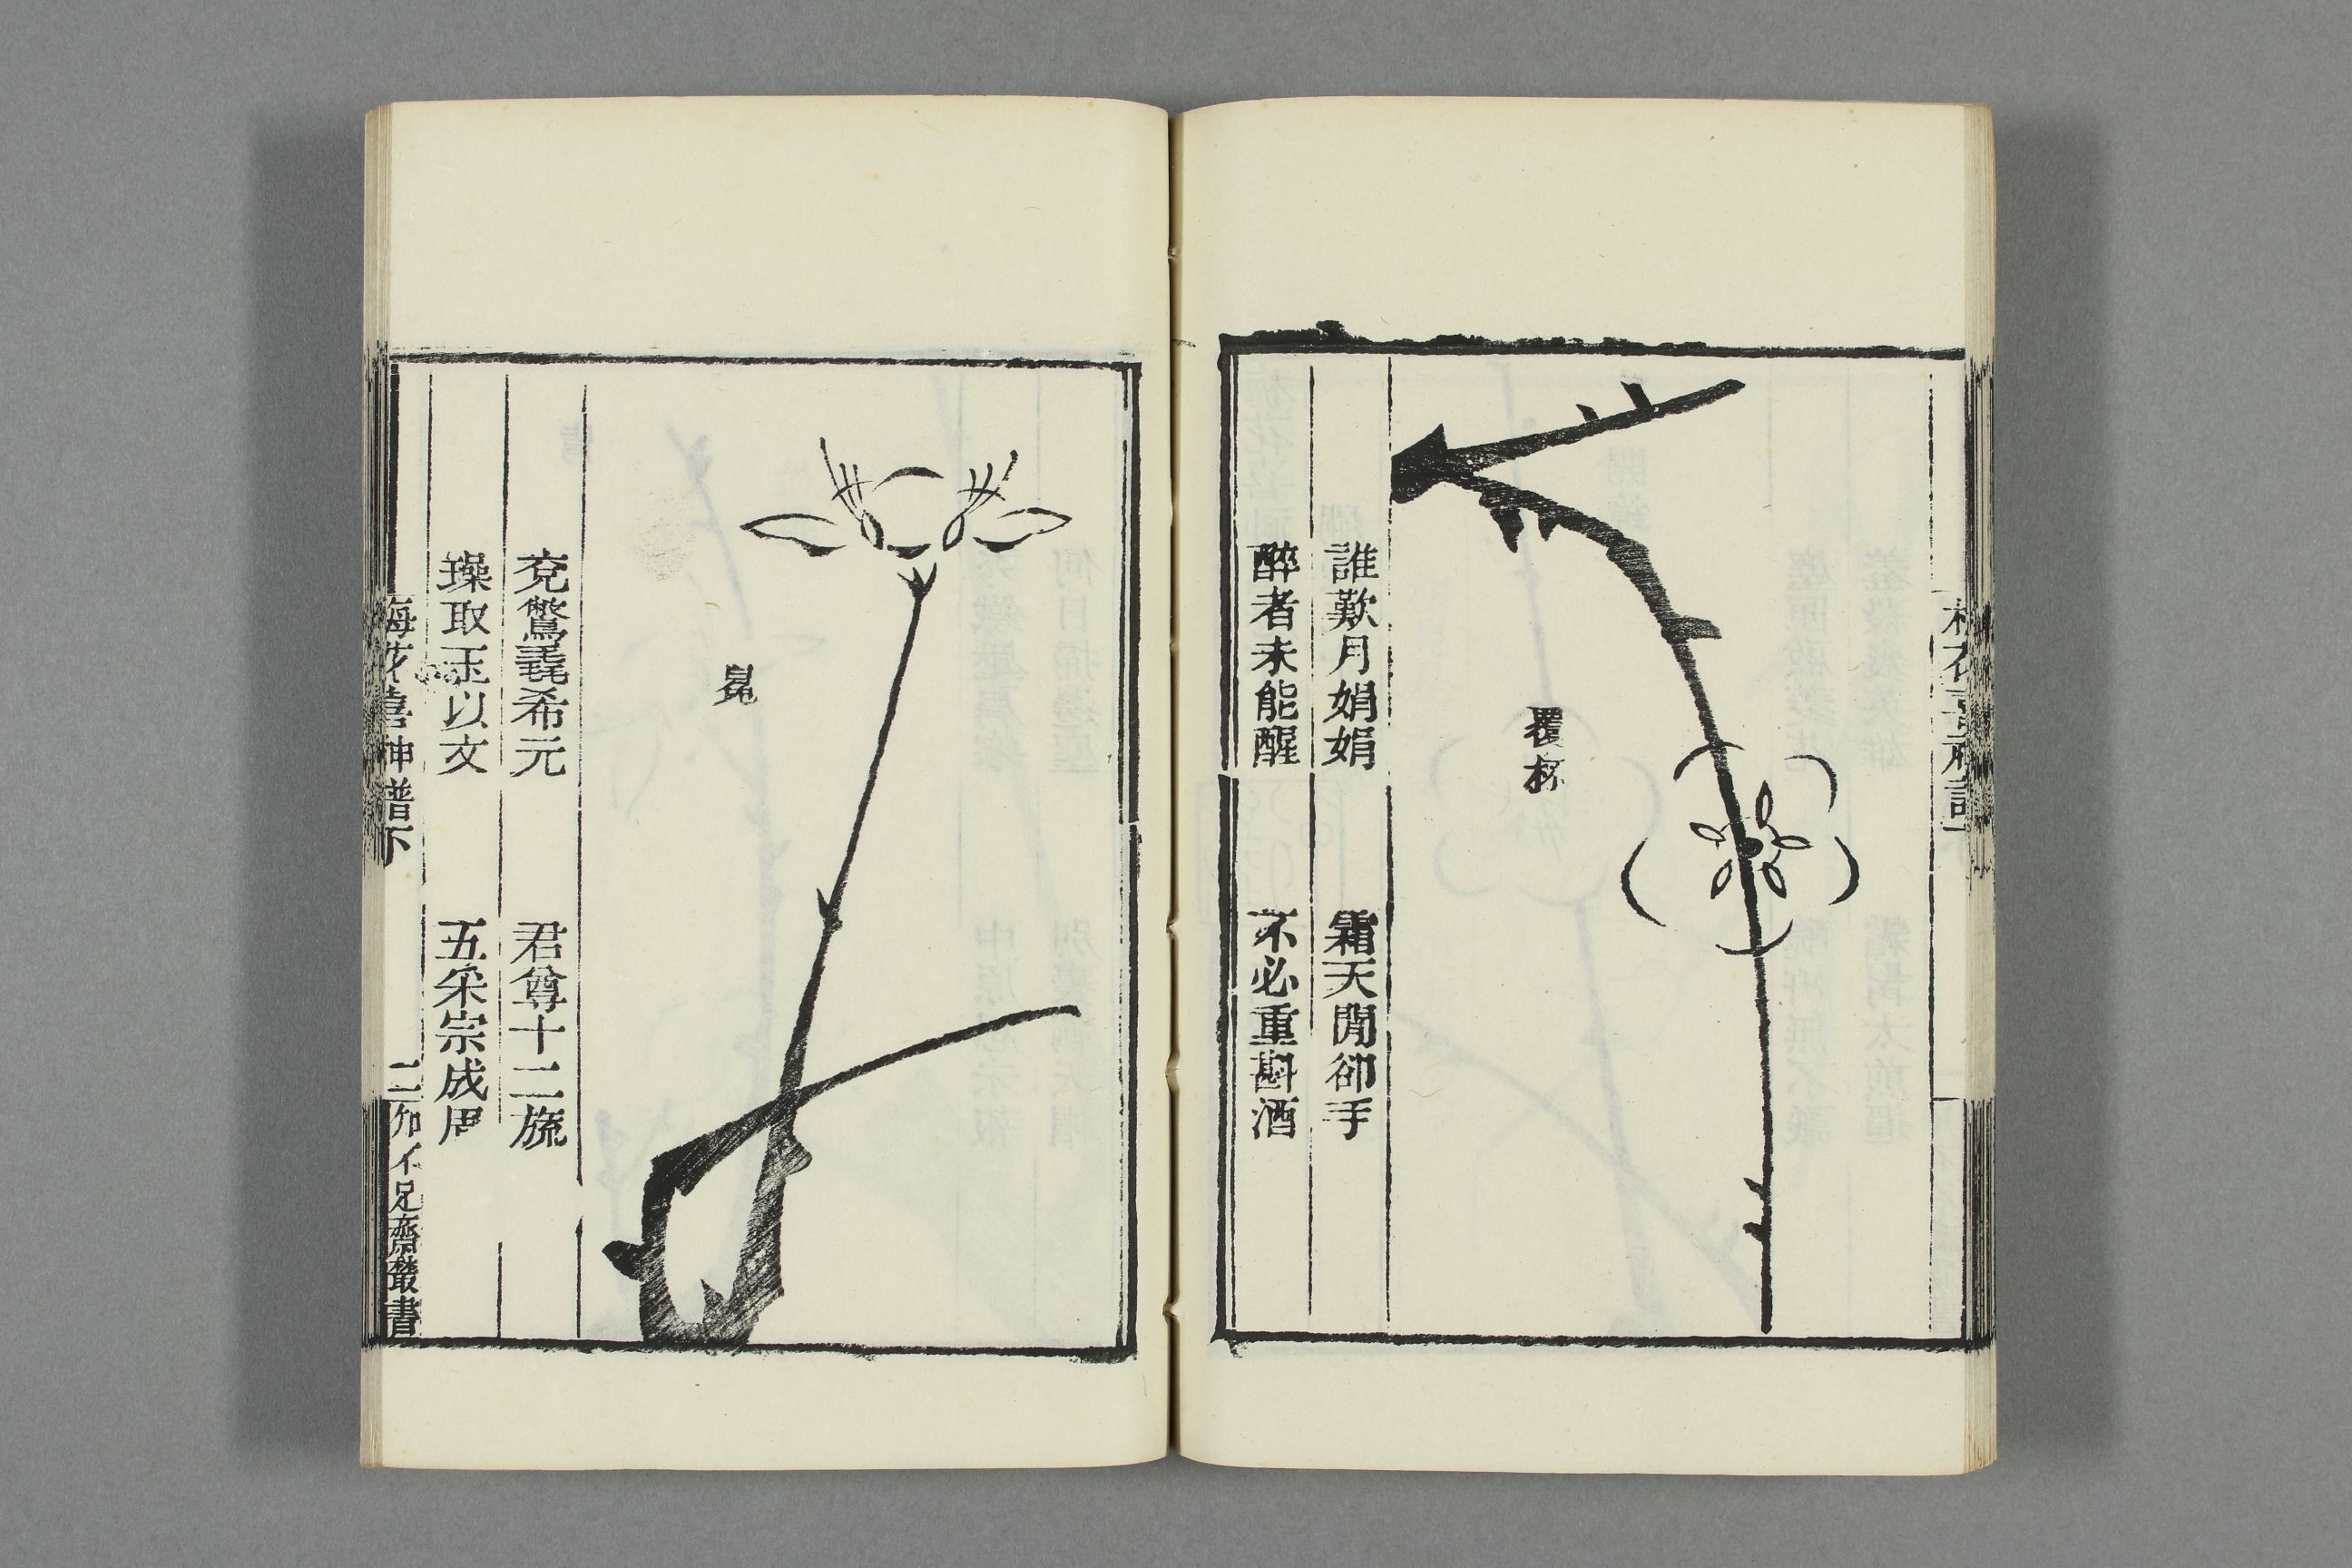 覆杯
誰歎月娟娟 霜天閒卻手
醉者未能醒 不必重斟酒
冕
兗鷩毳希元 君尊十二旒
璪取玉以文 五采宗成周
梅花喜神譜下 二 知不足齋叢書